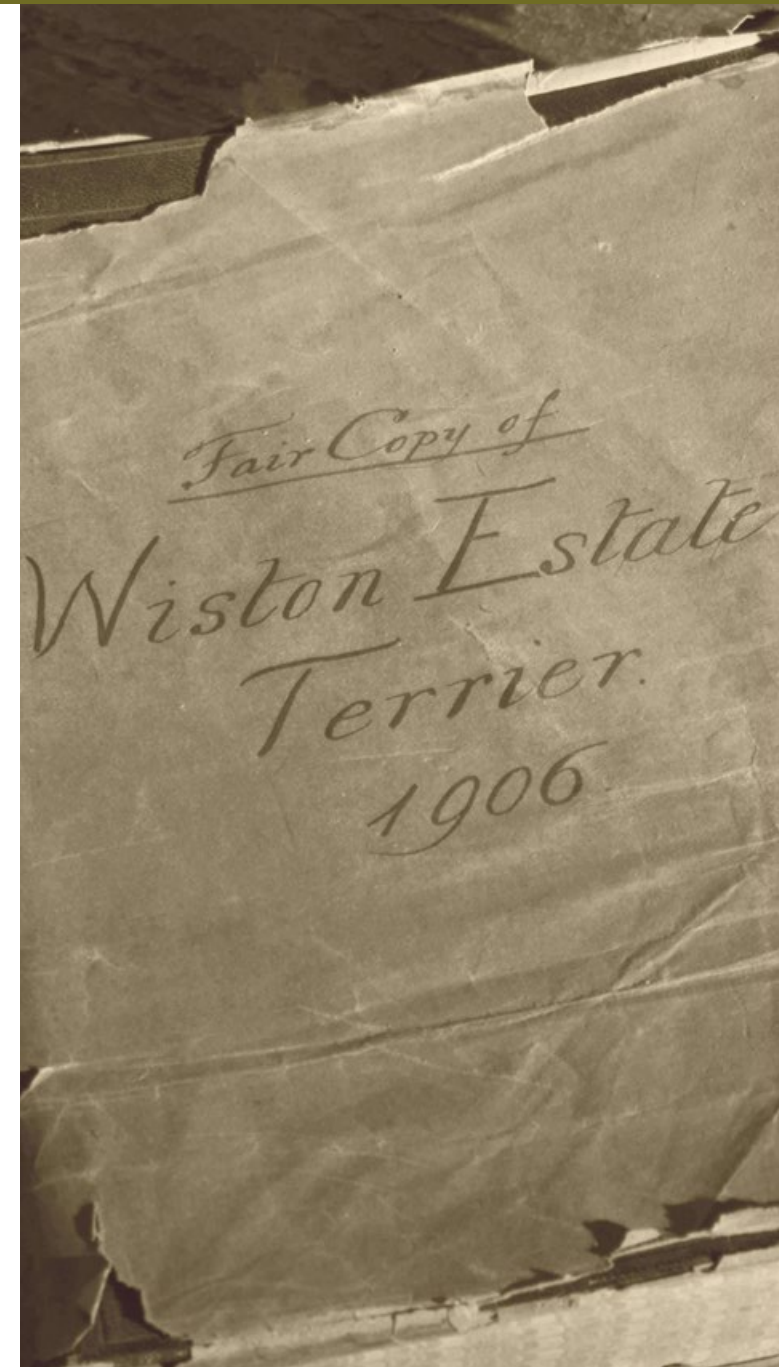 Fair Copy of
Wiston Estate
Terrier.
1906